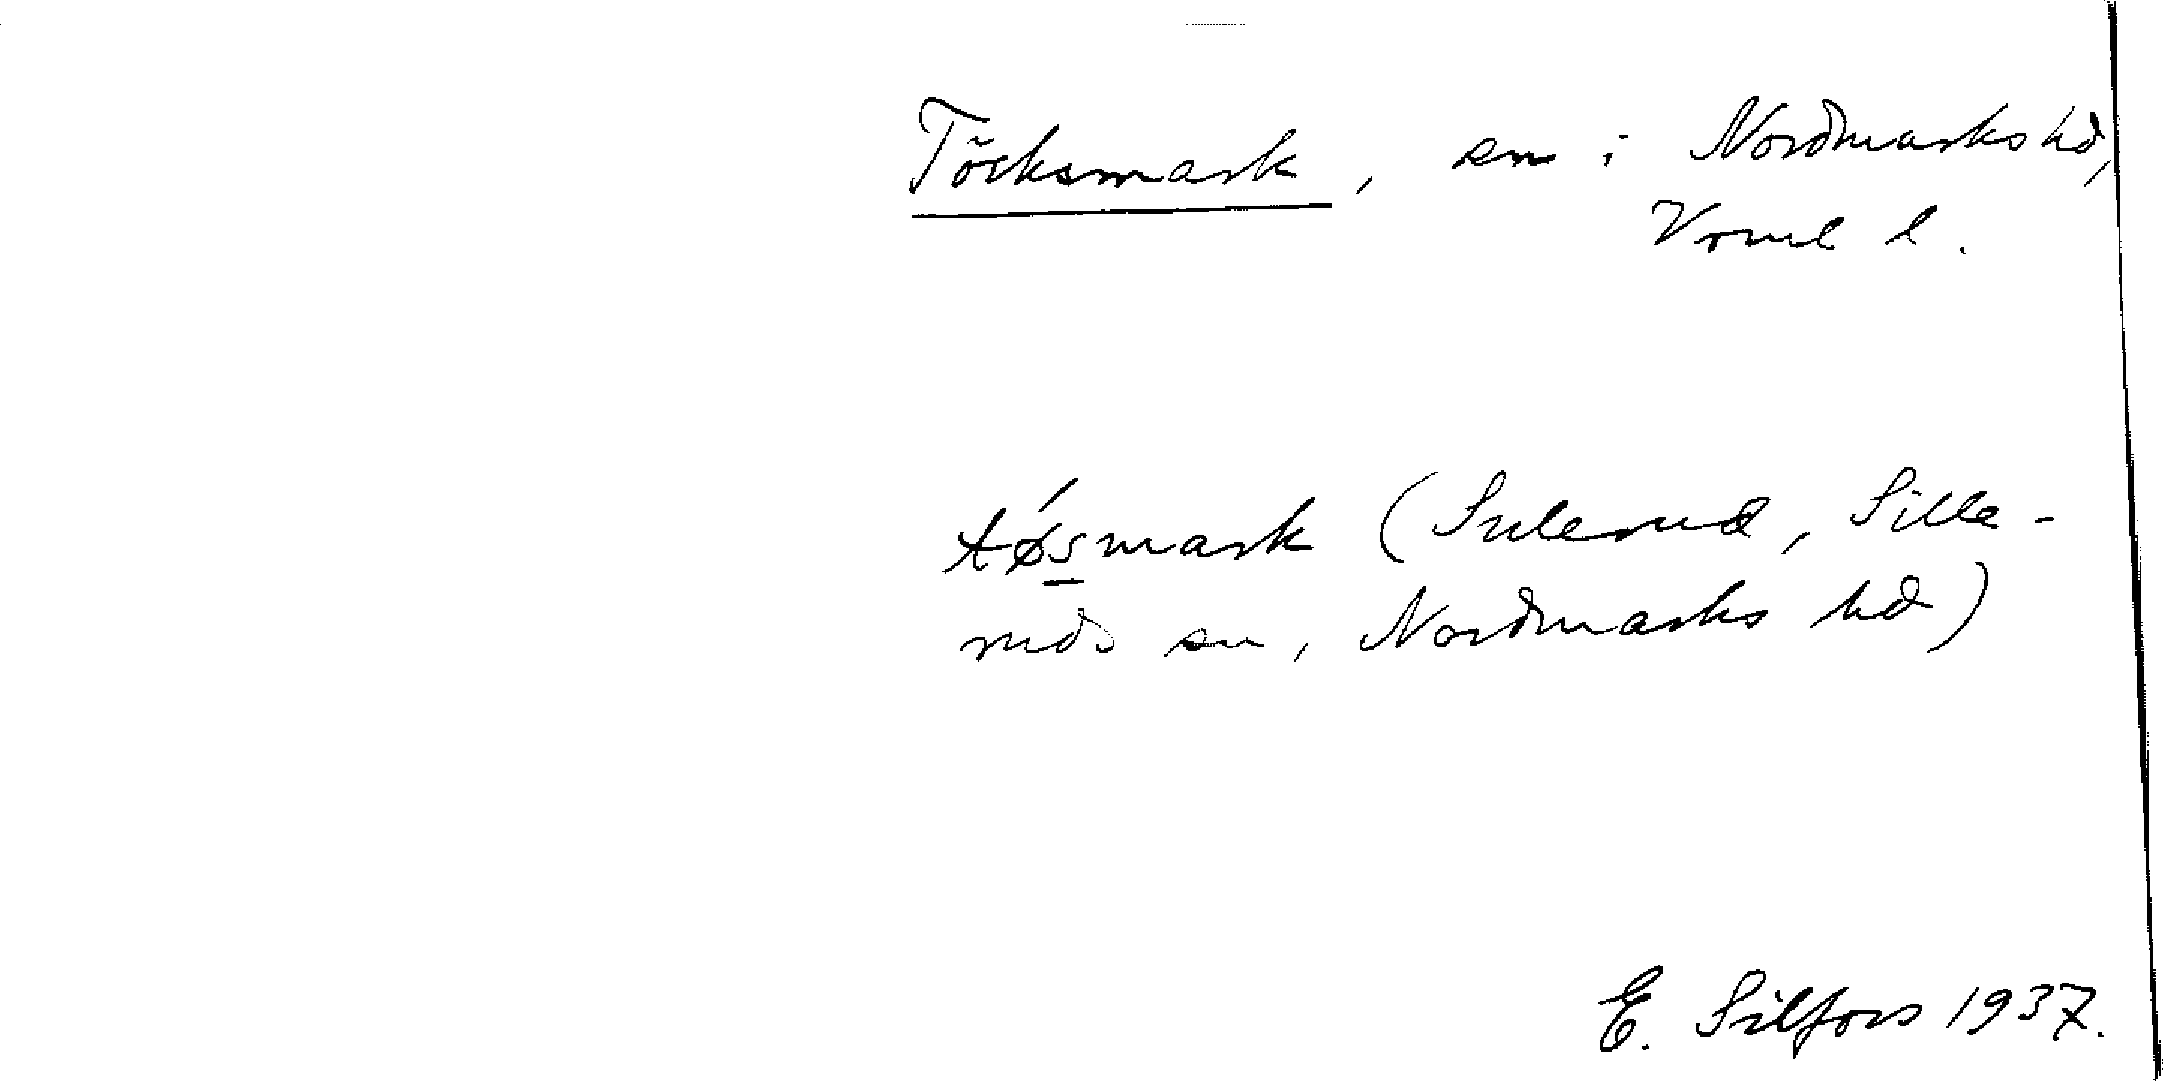 Töcksmark, sn i Nordmarks hd,
Vrml l.
tǿsmark (Sulerud, Sille-
ruds sn, Nordmarks hd)
E. Silfors 1937.